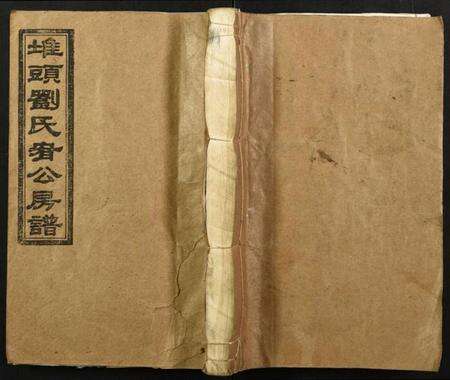 堆頭劉氏宥公房譜